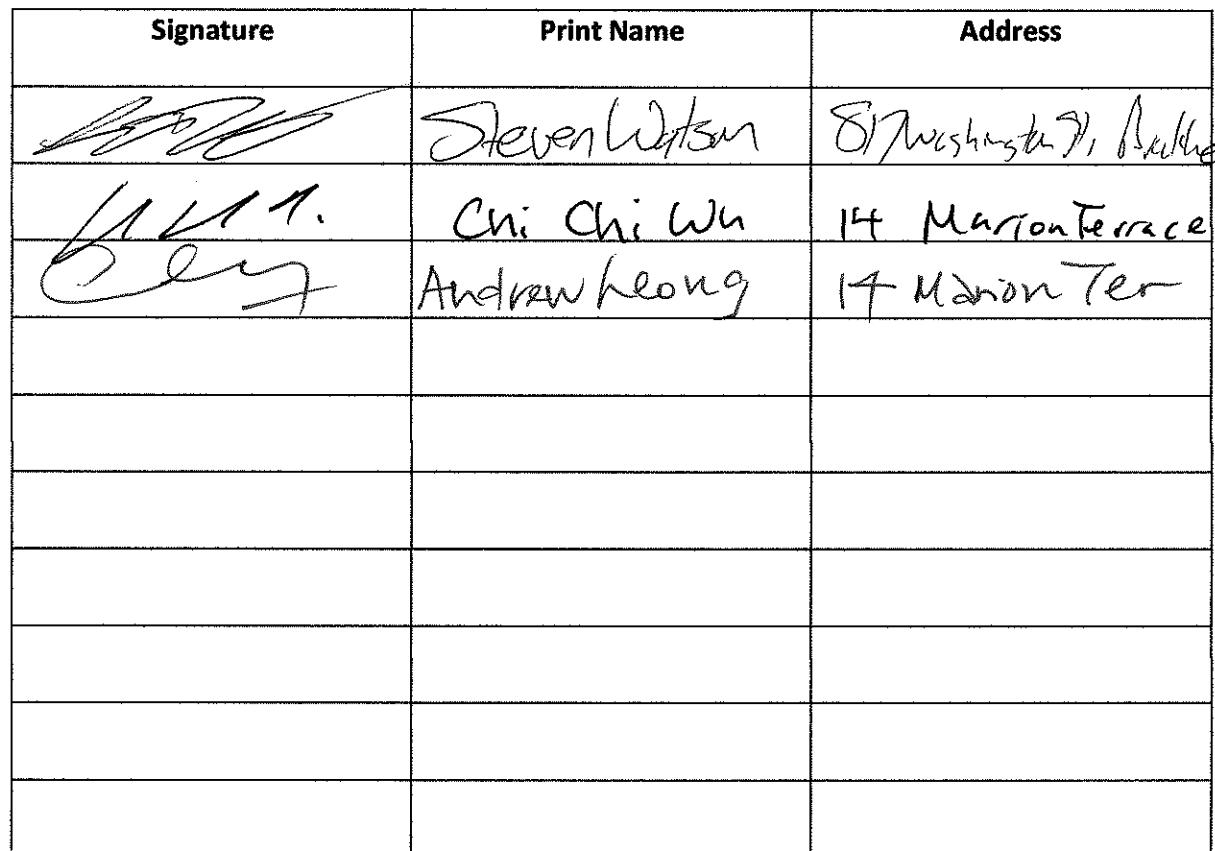 Signature Print Name Address
Steven Watson Washington St, Brookline
Chi Chi Wu 14 Marion Terrace
Andrew Leong 14 Marion Ter